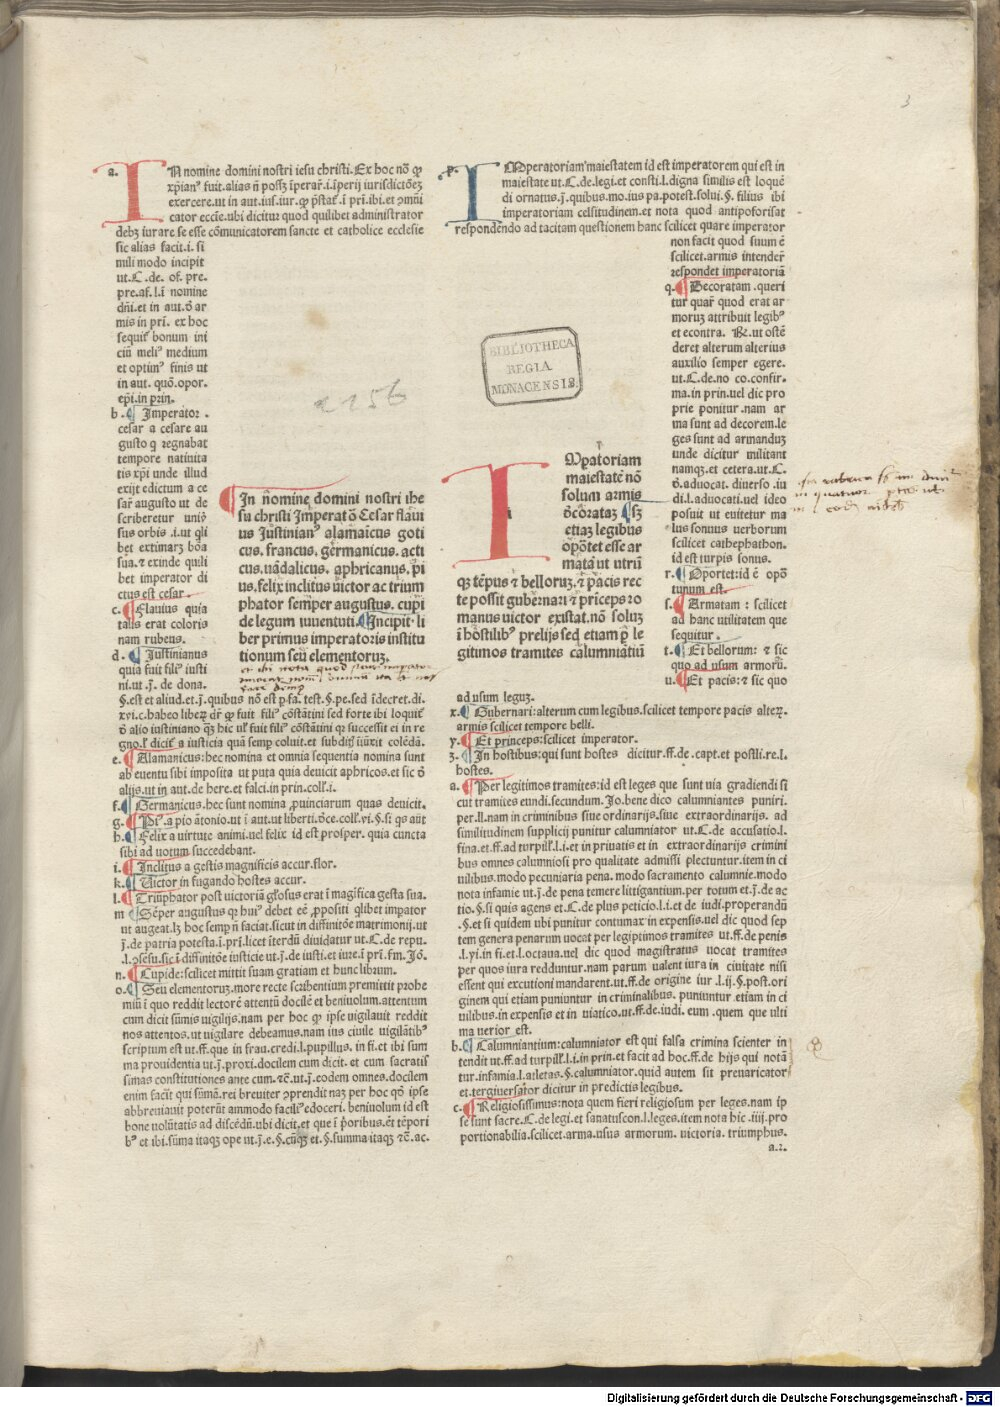 3
a. IN nomine domini nostri iesu christi. Ex hoc nō ꝙ
xp̄ian⁹ fuit. alias n̄ posꝫ īperar̄. i. īperij iurisdictōeꝫ
exercere. ut in aut. ius. iur. ꝙ p̄stat̄. ī prī. ibi. et ꝯmūi
cator eccłie. ubi dicitur quod quilibet administrator
debꝫ iurare se esse cōmunicatorem sancte et catholice ecclesie
sic alias facit. i. si
mili modo incipit
ut. C. de. of. pre.
pre. af. l. ī nomine
dn̄i. et in aut. ō ar
mis in prī. ex hoc
sequit̄ bonum ini
ciū meli⁹ medium
et optim⁹ finis ut
in aut. quō. opor.
ep̄i. in prin.
b. Imperator.
cesar a cesare au
gusto q̄ regnabat
tempore natiuita
tis xp̄i unde illud
exijt edictum a ce
sar̄ augusto ut de
scriberetur uniū
sus orbis. i. ut qli
bet extimarꝫ bōa
sua. ⁊ exinde quili
bet imperator di
ctus est cesar.
c. Flauius quia
talis erat coloris
nam rubeus.
d. Justinianus
quia fuit fili⁹ iusti
ni. ut. J. de dona.
§. est et aliud. et. J. quibus nō est p̄ fa. test. §. pe. sed īdecret. di.
xvi. c. habeo liberꝫ dr̄ ꝙ fuit fili⁹ cōstātini sed forte ibi loquit̄
ō alio iustiniano qꝫ hic ul̄ fuit fili⁹ cōstātini qꝫ successit ei in re
gno. l. dicit̄ a iusticia quā semp̄ coluit. et subdit⁹ iūxit colēdā.
e. Alamanicus: hec nomina et omnia sequentia nomina sunt
ab euentu sibi imposita ut puta quia deuicit aphricos. et sic ō
alijs. ut in aut. de here. et falci. in prin. coll̄. i.
f. Germanicus. hec sunt nomina ꝓuinciarum quas deuicit.
g. Pi⁹. a pio ātonio. ut ī aut. ut liberti. ōce. coll̄. vi. §. si qs aūt
h. Felix a uirtute animi. uel felix id est prosper. quia cuncta
sibi ad uotum succedebant.
i. Inclitus a gestis magnificis accur. flor.
k. Victor in fugando hostes accur.
l. Triūphator post uictoriā gl̄osus erat ī magifica gesta sua.
m Sēper augustus qꝫ hui⁹ debet eē ꝓpositi qlibet impator
ut augeat. lꝫ hoc semp̄ n̄ faciat. sicut in diffinitōe matrimonij. ut
J. de patria potesta. ī prī. licet īterdū diuidatur ut. C. de repu.
l. ꝯsēsu. sic ī diffinitōe iusticie ut. J. de iusti. et iure. ī prī. fm. Jō.
n. Cupide: scilicet mittit suam gratiam et hunc librum.
o. Seu elementorꝫ. more recte scribentium premittit prohe
miū ī quo reddit lectorē attentū docilē et beniuolum. attentum
cum dicit sūmis uigilijs. nam per hoc ꝙ ipse uigilauit reddit
nos attentos. ut uigilare debeamus. nam ius ciuile uigilātib⁹
scriptum est ut. ff. que in frau. credi. l. pupillus. in fi. et ibi sum
ma prouidentia ut. J. proxi. docilem cum dicit. et cum sacratis
simas constitutiones ante cum. ⁊c. ut. J. eodem omnes. docilem
enim facit qui sūmā. rei breuiter ꝯprendit naꝫ per hoc qō ipse
abbreuiauit poterūt ammodo facili⁹ edoceri. beniuolum id est
bone uolūtatis ad discēdū. ubi dicit. et que ī p̄oribus. ēt tēpori
b⁹ et ibi. sūma itaqꝫ ope ut. J. e. §. cūqꝫ et. §. summa itaqꝫ ⁊c. ac.
In nomine domini nostri ihe
su christi Imperat̄ ō Cesar flaui
us Justinian⁹ alamaīcus goti
cus. francus. germanicus. acti
cus. uādalicus. aphricanus. pi
us. felix inclitus uictor ac trium
phator semper augustus. cupi
de legum iuuentuti. Incipit li
ber primus imperatoris institu
tionum seu elementorꝫ.
p. IMperatoriam maiestatem id est imperatorem qui est in
maiestate ut. C. de. legi. et consti. l. digna similis est loquē
di ornatus. J. quibus. mo. ius pa. potest. solui. §. filius ibi
imperatoriam celsitudinem. et nota quod antipoforisat
respondendo ad tacitam questionem hanc scilicet quare imperator
non facit quod suum ē
scilicet. armis intender̄
respondet imperatoriā
q. Decoratam. queri
tur quar̄ quod erat ar
morꝫ attribuit legib⁹
et econtra. R̄. ut ostē
deret alterum alterius
auxilio semper egere.
ut. C. de. no co. confir.
ma. in prin. uel dic pro
prie ponitur. nam ar
ma sunt ad decorem. le
ges sunt ad armandꝫ
unde dicitur militant
namqꝫ. et cetera. ut. C.
ō. aduocat. diuerso. iu
di. l. aduocati. uel ideo
posuit ut euitetur ma
lus sonuus uerborum
scilicet cathephathon.
id est turpis sonus.
r. Oportet: id ē opō
tunum est.
s. Armatam: scilicet
ad hanc utilitatem que
sequitur.
t. Et bellorum: ⁊ sic
quo ad usum armorū.
u. Et pacis: ⁊ sic quo
BIBLIOTHECA
REGIA
MONACENSIS.
2156
IMpatoriam
maiestatē nō
solum armis
ōcōrataꝫ sꝫ
etiaꝫ legibus
opōtet esse ar
matā ut utrū
qꝫ tēpus ⁊ bellorꝫ. ⁊ pacis rec
te possit gubernari ⁊ prīceps ro
manus uictor existat. nō soluꝫ
ī hostilib⁹ prelijs sed etiam p̄ le
gitimos tramites calumniātiū
ad usum legum.
x. Gubernari: alterum cum legibus. scilicet tempore pacis alterꝫ.
armis scilicet tempore belli.
y. Et princeps: scilicet imperator.
z. In hostibus: qui sunt hostes dicitur. ff. de. capt. et postli. re. l.
hostes.
a. Per legitimos tramites: id est leges que sunt uia gradiendi si
cut tramites eundi. secundum. Jo. bene dico calumniantes puniri.
per. ll. nam in criminibus siue ordinarijs. siue extraordinarijs. ad
similitudinem supplicij punitur calumniator ut. C. de accusatio. l.
fina. et. ff. ad turpil̄. l. i. et in priuatis et in extraordinarijs crimini
bus omnes calumniosi pro qualitate admissi plectuntur. item in ci
uilibus. modo pecuniaria pena. modo sacramento calumnie. modo
nota infamie ut. J. de pena temere littigantium. per totum et. J. de ac
tio. §. si quis agens et. C. de plus peticio. l. i. et de iudi. properandū
. §. et si quidem ubi punitur contumax in expensis. uel dic quod sep
tem genera penarum uocat per legiptimos tramites ut. ff. de penis
. l. yi. in fi. et. l. octaua. uel dic quod magistratus uocat tramites
per quos iura redduntur. nam parum ualent iura in ciuitate nisi
essent qui excutioni mandarent. ut. ff. de origine iur. l. ij. §. post. ori
ginem qui etiam puniuntur in criminalibus. puniuntur etiam in ci
uilibus. in expensis et in uiatico. ut. ff. de. iudi. eum. quem que ulti
ma uerior est.
b. Calumniantium: calumniator est qui falsa crimina scienter in
tendit ut. ff. ad turpil̄. l. i. in prin. et facit ad hoc. ff. de hijs qui notā
tur. infamia. l. atletas. §. calumniator. quid autem sit preuaricator
et. tergiuersator dicitur in predictis legibus.
c. Religiosissimus: nota quem fieri religiosum per leges. nam ip
se sunt sacre. C. de legi. et senatuscon. l. leges. item nota hic. iiij. pro
portionabilia. scilicet. arma. usus armorum. uictoria. triumphus.
a. 2.
Digitalisierung gefördert durch die Deutsche Forschungsgemeinschaft - DFG